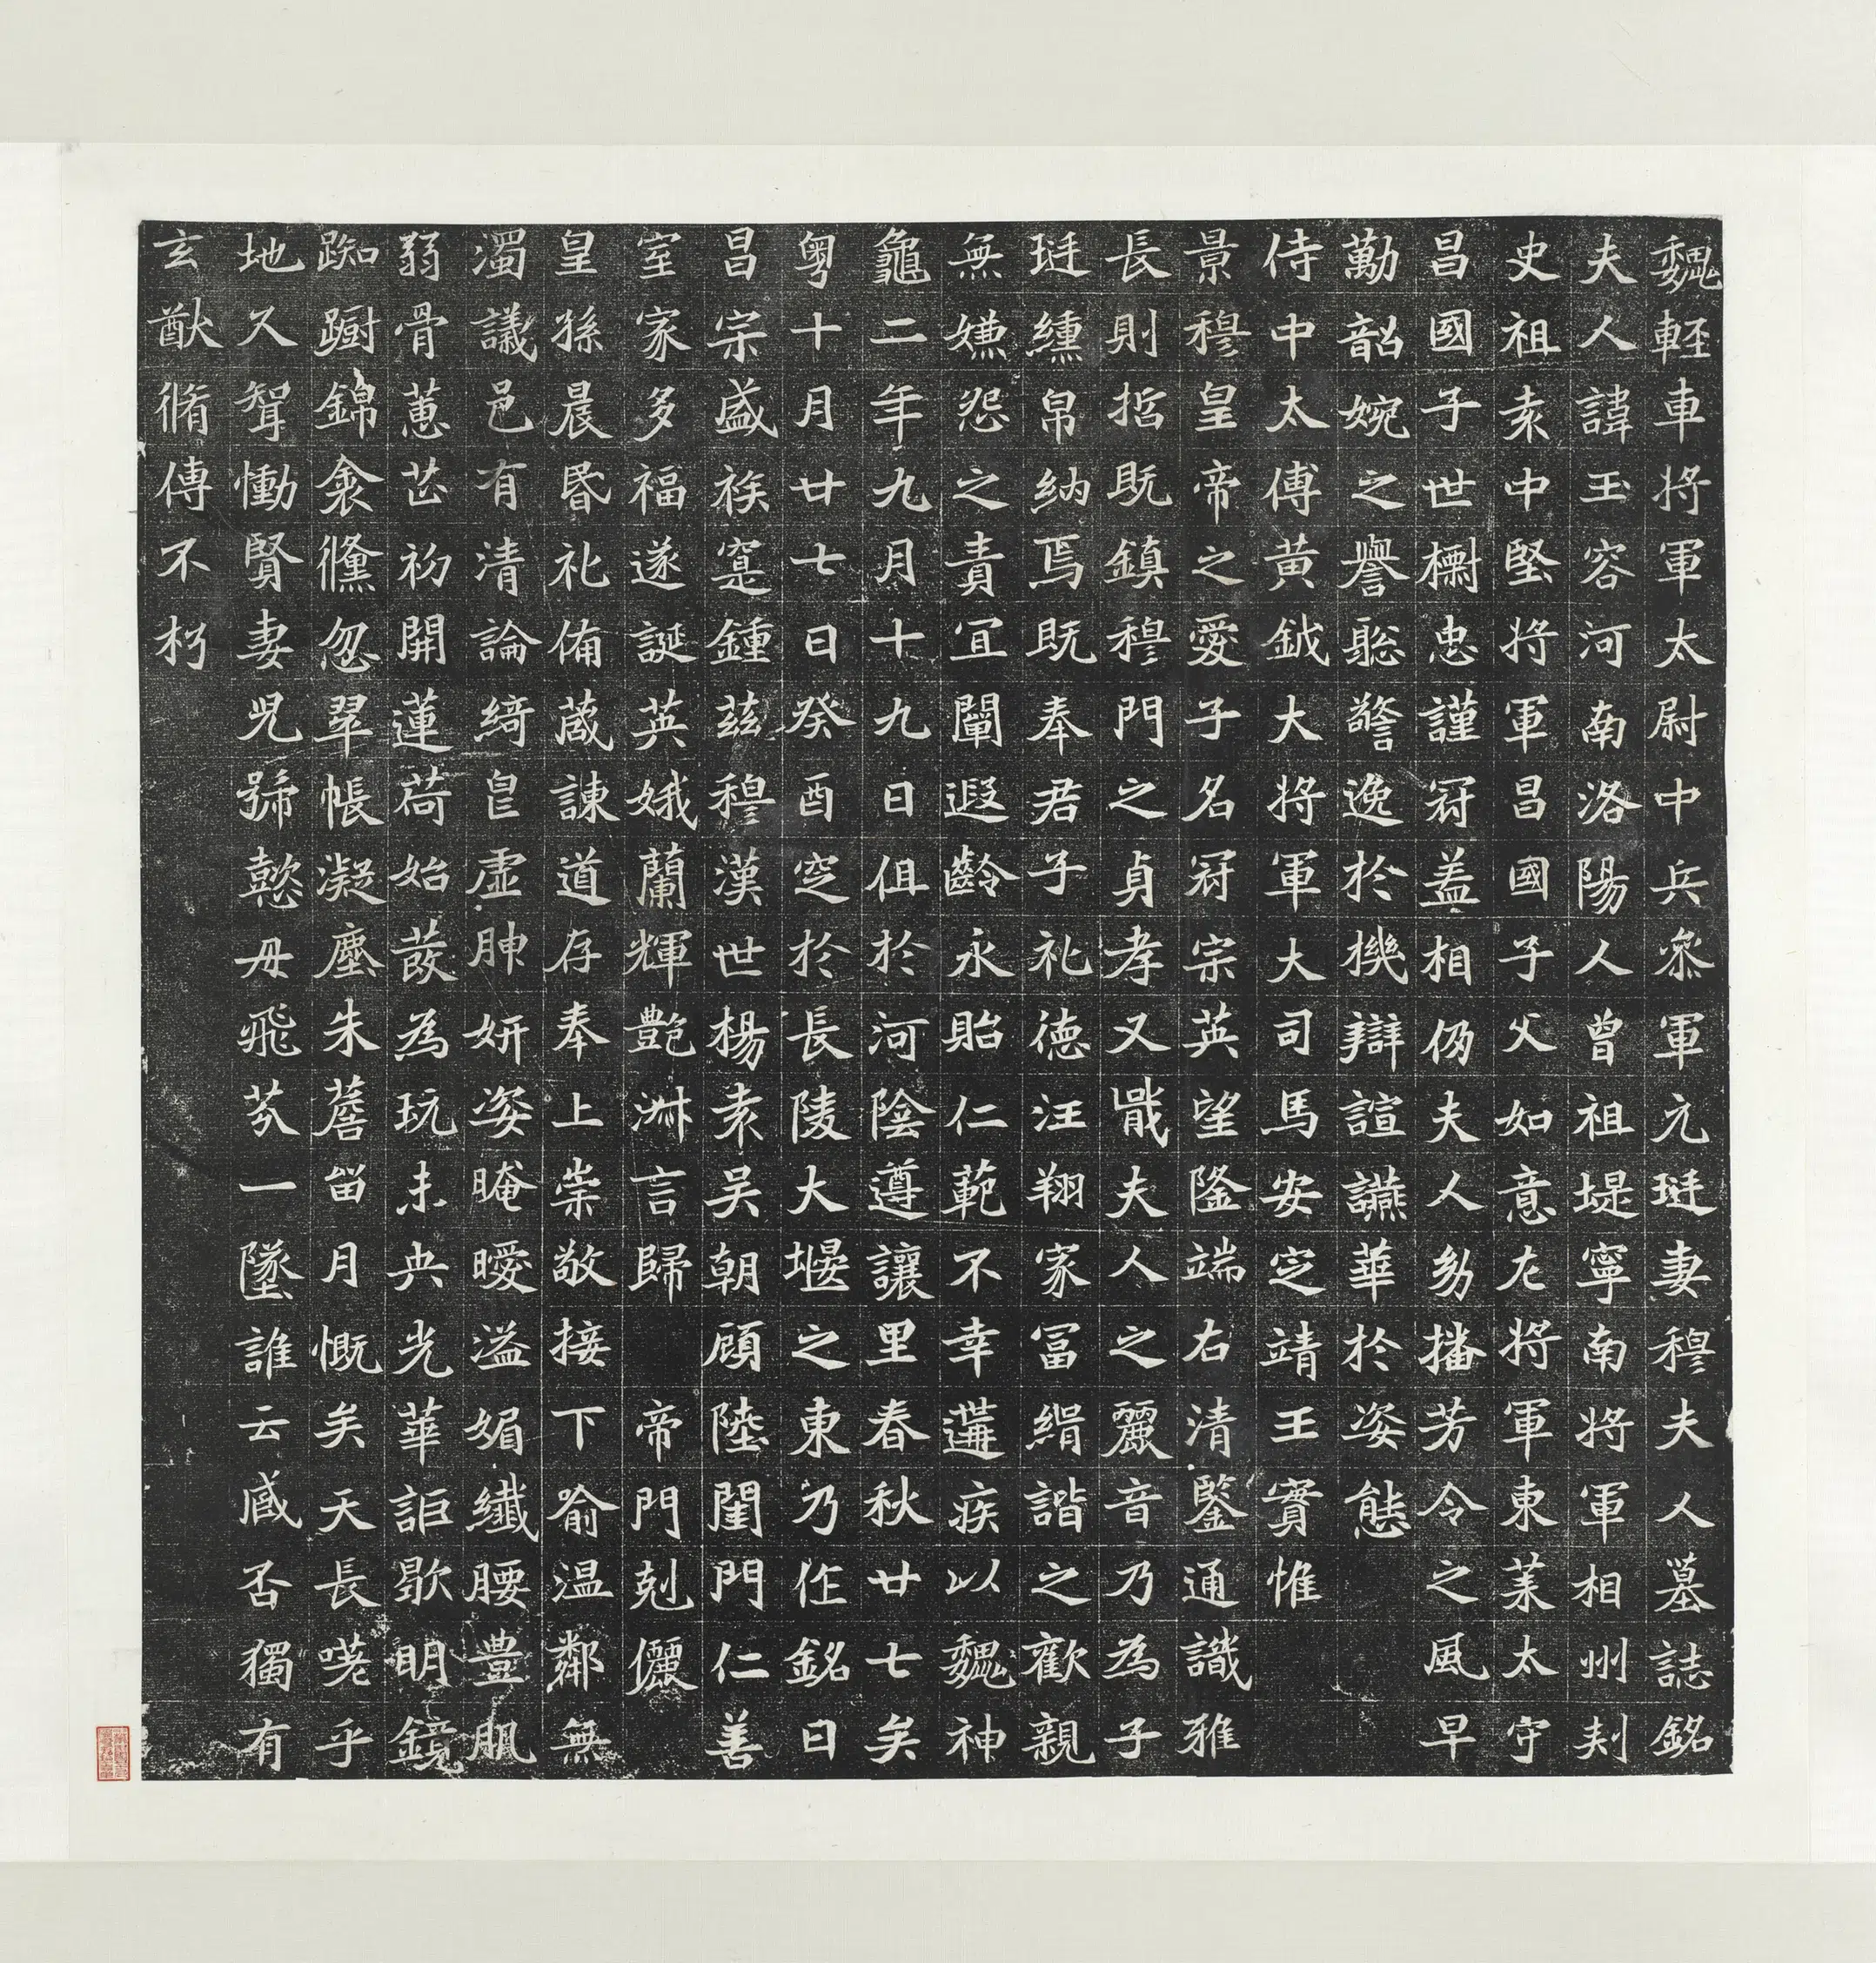 魏輕車將軍太尉中兵參軍元珽妻穆夫人墓誌銘
夫人諱玉容河南洛陽人曾祖堤寧南將軍相州刾
史祖袁中堅將軍昌國子父如意左將軍東萊太守
昌國子世櫛忠謹冠蓋相仍夫人幼播芳令之風早
勤韶婉之譽聡警逸於機辯諠讌華於姿態
侍中太傅黃鉞大將軍大司馬安定靖王寔惟
景穆皇帝之愛子名冠宗英望隆端右清鑒通識雅
長則哲既鎮穆門之貞孝又戢夫人之麗音乃為子
珽纁帛納焉既奉君子礼德汪翔家冨緝諧之歡親
無嫌怨之責宜闡遐齡永貽仁範不幸遘疾以魏神
龜二年九月十九日徂於河陰遵讓里春秋廿七矣
粤十月廿七日癸酉窆於長陵大堰之東乃作銘曰
昌宗盛族寔鍾茲穆漢世楊袁吴朝顧陸閨門仁善
室家多福遂誕英娥蘭輝艶淋言歸帝門剋儷
皇孫晨昏礼俻葴諫道存奉上崇敬接下喻温鄰無
濁議邑有清論綺皃虛胂妍姿晻曖溢媚纖腰豊肌
弱骨蕙芷初開蓮荷始蕟為玩未央光華詎歇明鏡
踟躕錦衾儵忽翠帳凝塵朱簷畄月慨矣天長嘵乎
地久聟慟賢妻児號懿母飛芥一墜誰云臧否獨有
玄猷脩傳不朽